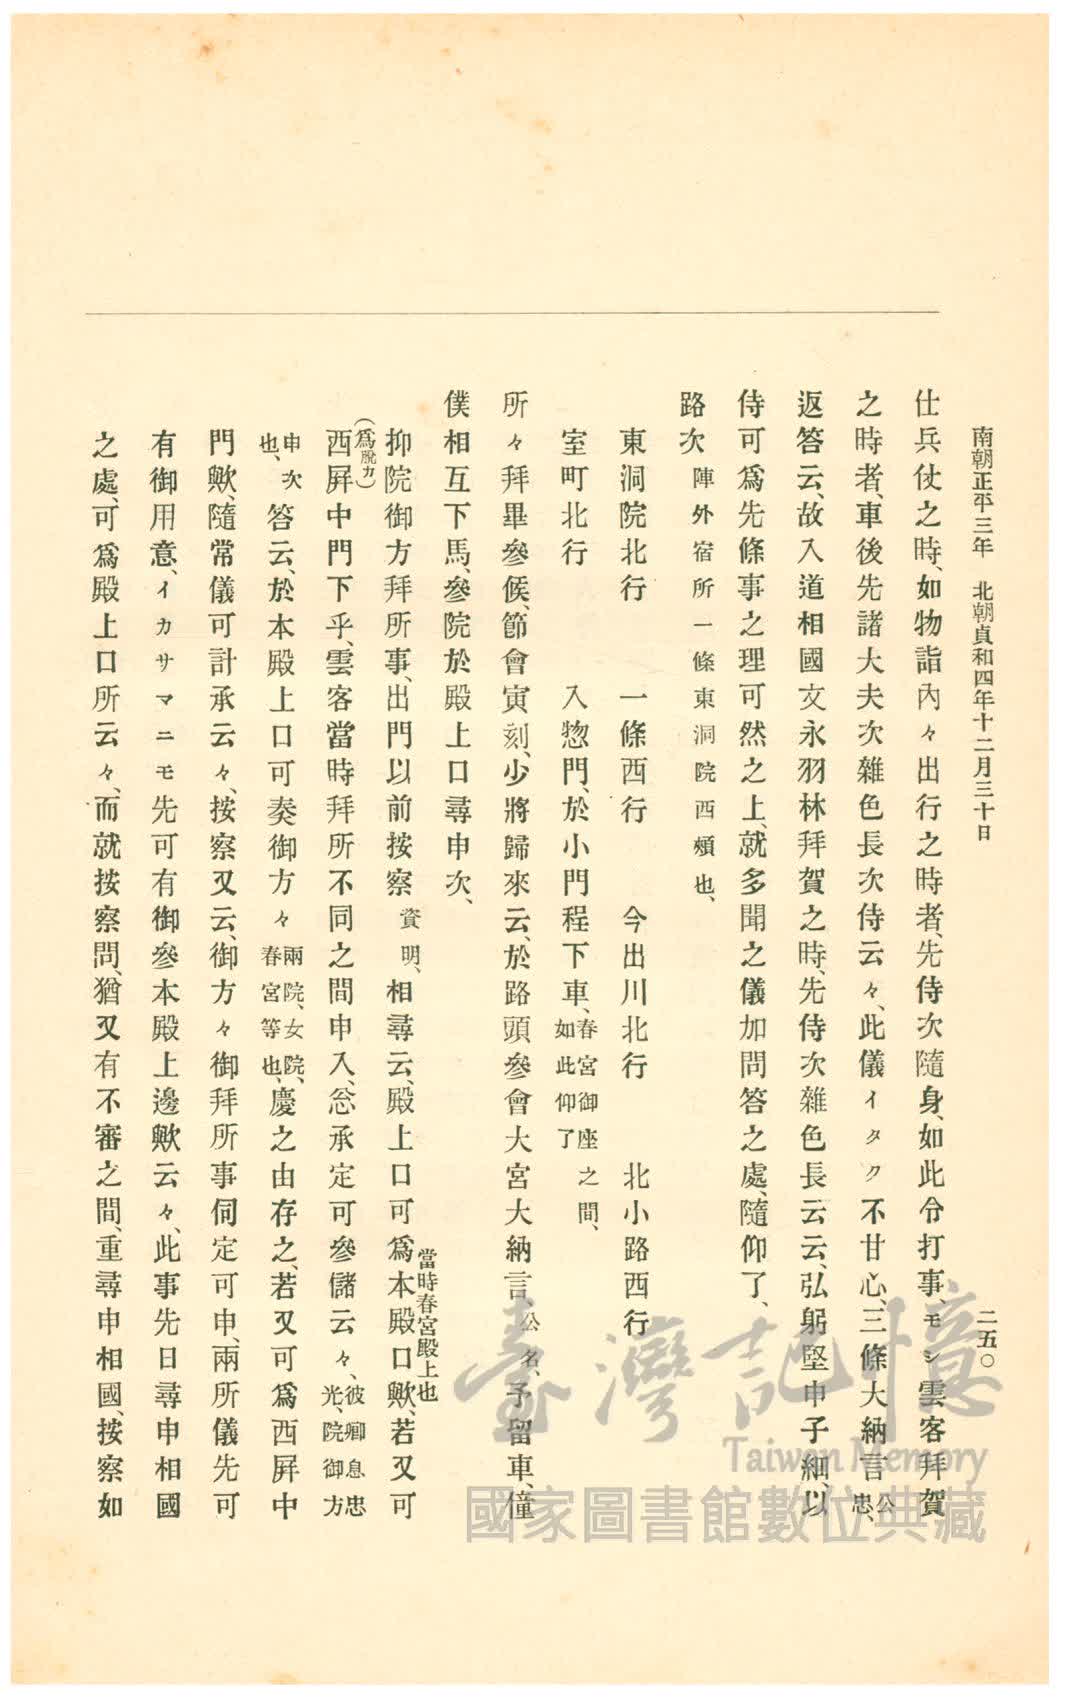 南朝正平三年　北朝貞和四年十二月三十日
二五〇
仕兵仗之時、如物詣內々出行之時者、先侍次隨身、如此令打事、モシ雲客拜賀
之時者、車後先諸大夫次雜色長次侍云々、此儀イタク不甘心、三條大納言公忠、
返答云、故入道相國文永羽林拜賀之時、先侍次雜色長云云、弘躬堅申子細以
侍可爲先條事之理可然之上、就多聞之儀加問答之處、隨仰了、
路次陣外宿所一條東洞院西頰也、
東洞院北行　一條西行　今出川北行　北小路西行
室町北行　入惣門、於小門程下車、春宮御座之間、如此仰了
所々拜畢參候、節會寅刻、少將歸來云、於路頭參會大宮大納言公名、予留車、僮
僕相互下馬、參院於殿上口尋申次、
抑院御方拜所事、出門以前按察資明、相尋云、殿上口可爲本殿口歟、若又可
當時春宮殿上也
(爲脫カ)
西屛中門下乎、雲客當時拜所不同之間申入、忩承定可參儲云々、彼卿息忠光、院御方
申次也、答云、於本殿上口可奏御方々兩院、女院、春宮等也、慶之由存之、若又可爲西屛中
門歟、隨常儀可計承云々、按察又云、御方々御拜所事伺定可申、兩所儀先可
有御用意、イカサマニモ先可有御參本殿上邊歟云々、此事先日尋申相國
之處、可爲殿上口所云々、而就按察問、猶又有不審之間、重尋申相國、按察如
臺灣記憶
Taiwan Memory
國家圖書館數位典藏